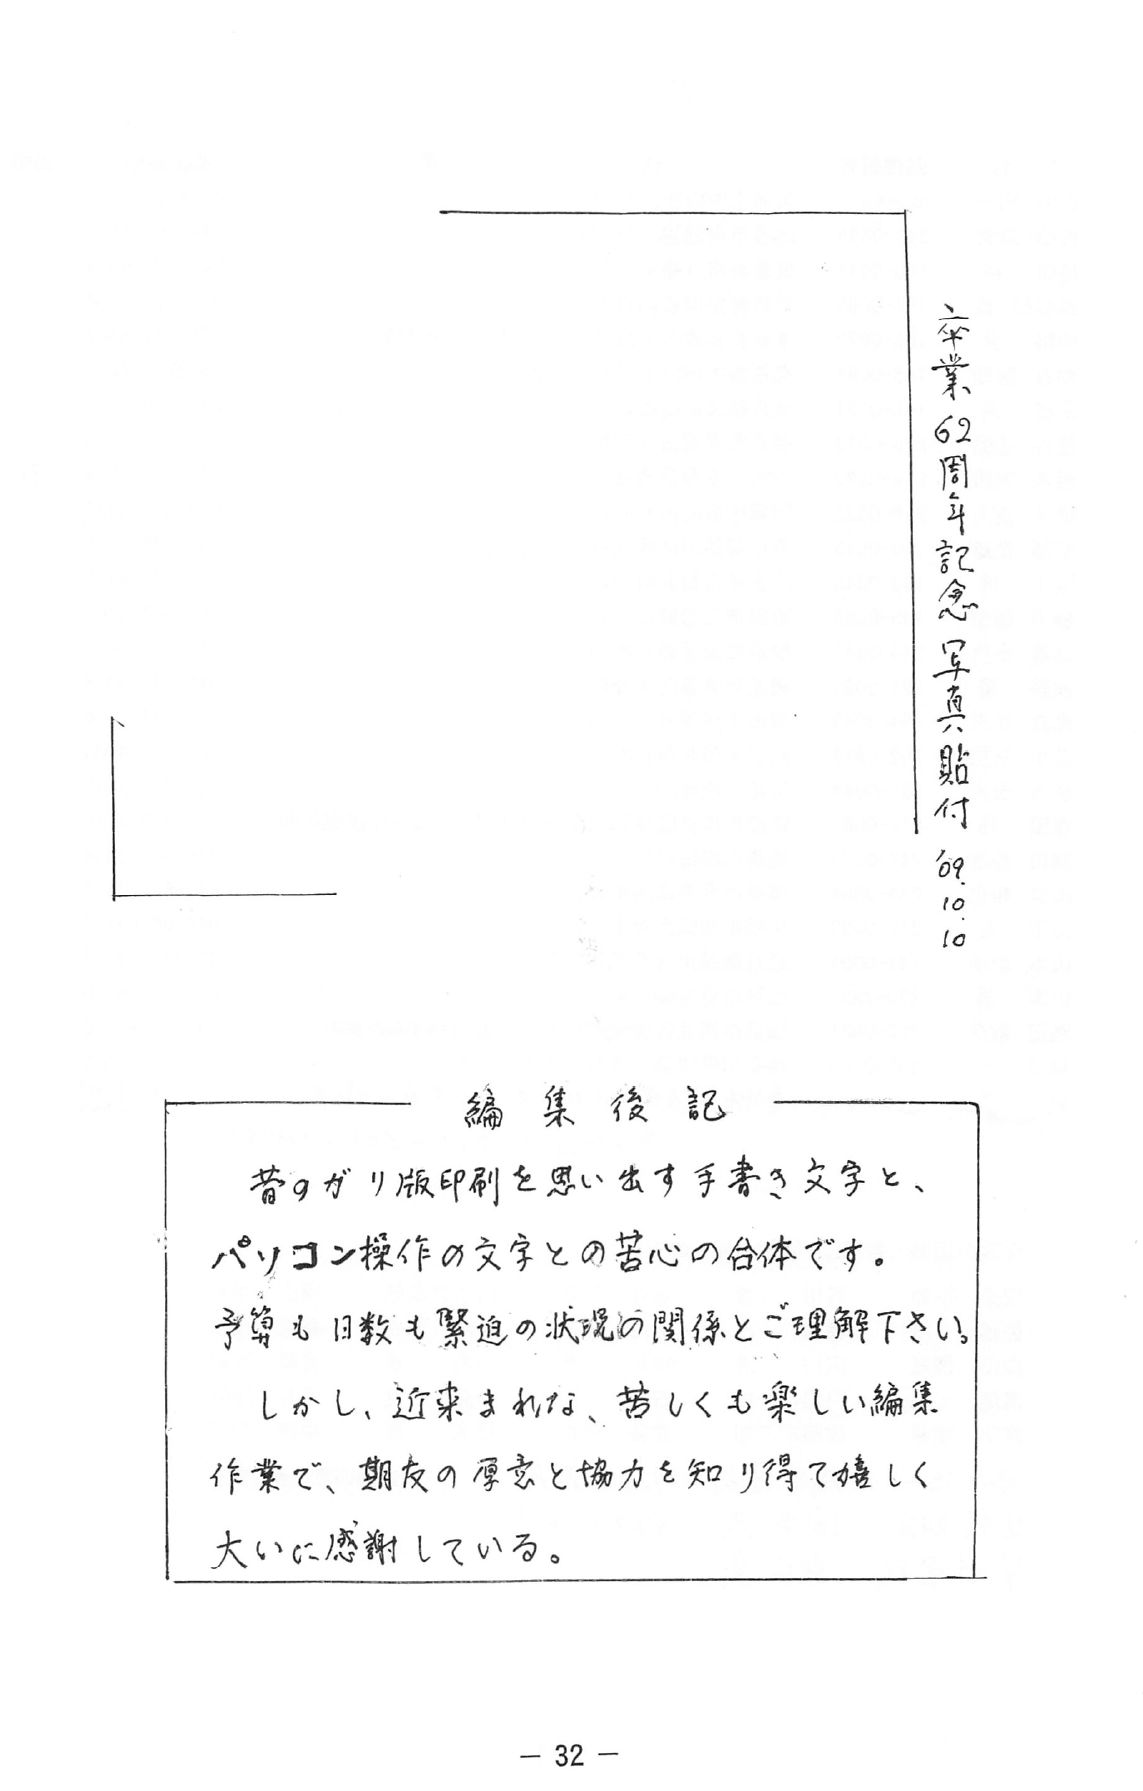 卒業62周年記念写真貼付 '09.10.10
編集後記
昔のガリ版印刷を思い出す手書き文字と、
パソコン操作の文字との苦心の合体です。
予算も日数も緊迫の状況の関係とご理解下さい。
しかし、近来まれな、苦しくも楽しい編集
作業で、期友の厚意と協力を知り得て嬉しく
大いに感謝している。
— 32 —